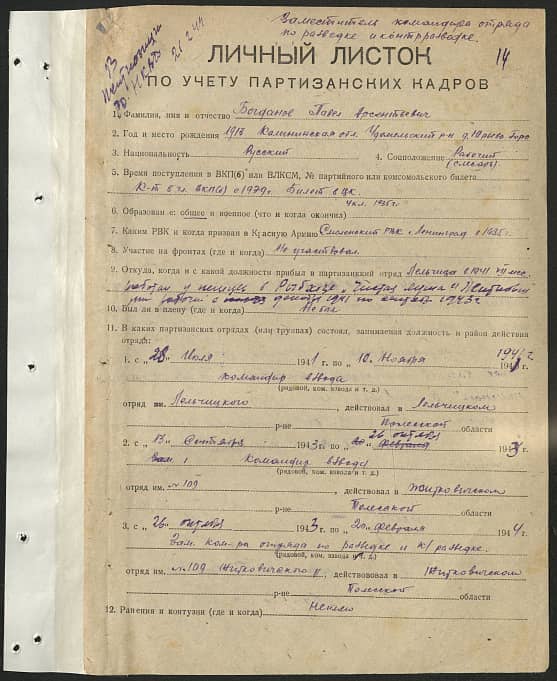 Заместитель командира отряда
по разведке и контрразведке.
14
13
21 2 44
ЛИЧНЫЙ ЛИСТОК
ПО УЧЕТУ ПАРТИЗАНСКИХ КАДРОВ
1. Фамилия, имя и отчество Богданов Павел Арсентьевич
2. Год и место рождения 1913 Калининская обл. Удомельский р-н д. Юрьево
3. Национальность Русский 4. Соцположение Рабочий
(слесарь)
5. Время поступления в ВКП(б) или ВЛКСМ, № партийного или комсомольского билета
К-т в чл. ВКП(б) с Билет в ЦК.
6. Образован е: общее и военное (что и когда окончил) 4 кл. 1925 г.
7. Каким РВК и когда призван в Красную Армию Смоленский РВК г. Ленинград в 1935 г.
8. Участие на фронтах (где и когда) Не участвовал
9. Откуда, когда и с какой должности прибыл в партизанский отряд Лельчицы в 1941 VII мес.
работал
10. Был ли в плену (где и когда) Не был
11. В каких партизанских отрядах (или группах) состоял, занимаемая должность и район действия
отряда:
1. с „28„ Июля 1941 г. по „10„ Ноября 194 г.
командир взвода
(рядовой, ком. взвода и т. д.)
отряд им. Лельчицкого, действовал в Лельчицком
р-не Полесской области
2. с „13„ Сентября 1943 г. по „26 октября 1943
Зам. командир взвода
(рядовой, ком. взвода и т. д.)
отряд им. №109, действовал в Житковичском
р-не Полесской области
3. с „26„ октября 1943 г. по „20„ февраля 1944 г.
Зам. ком-ра отряда по разведке и к/разведке.
(рядовой, ком. взвода и т. д.)
отряд им. №109 Житковичского, действововал в Житковичском
р-не Полесской области
12. Ранения и контузии (где и когда) Не имею